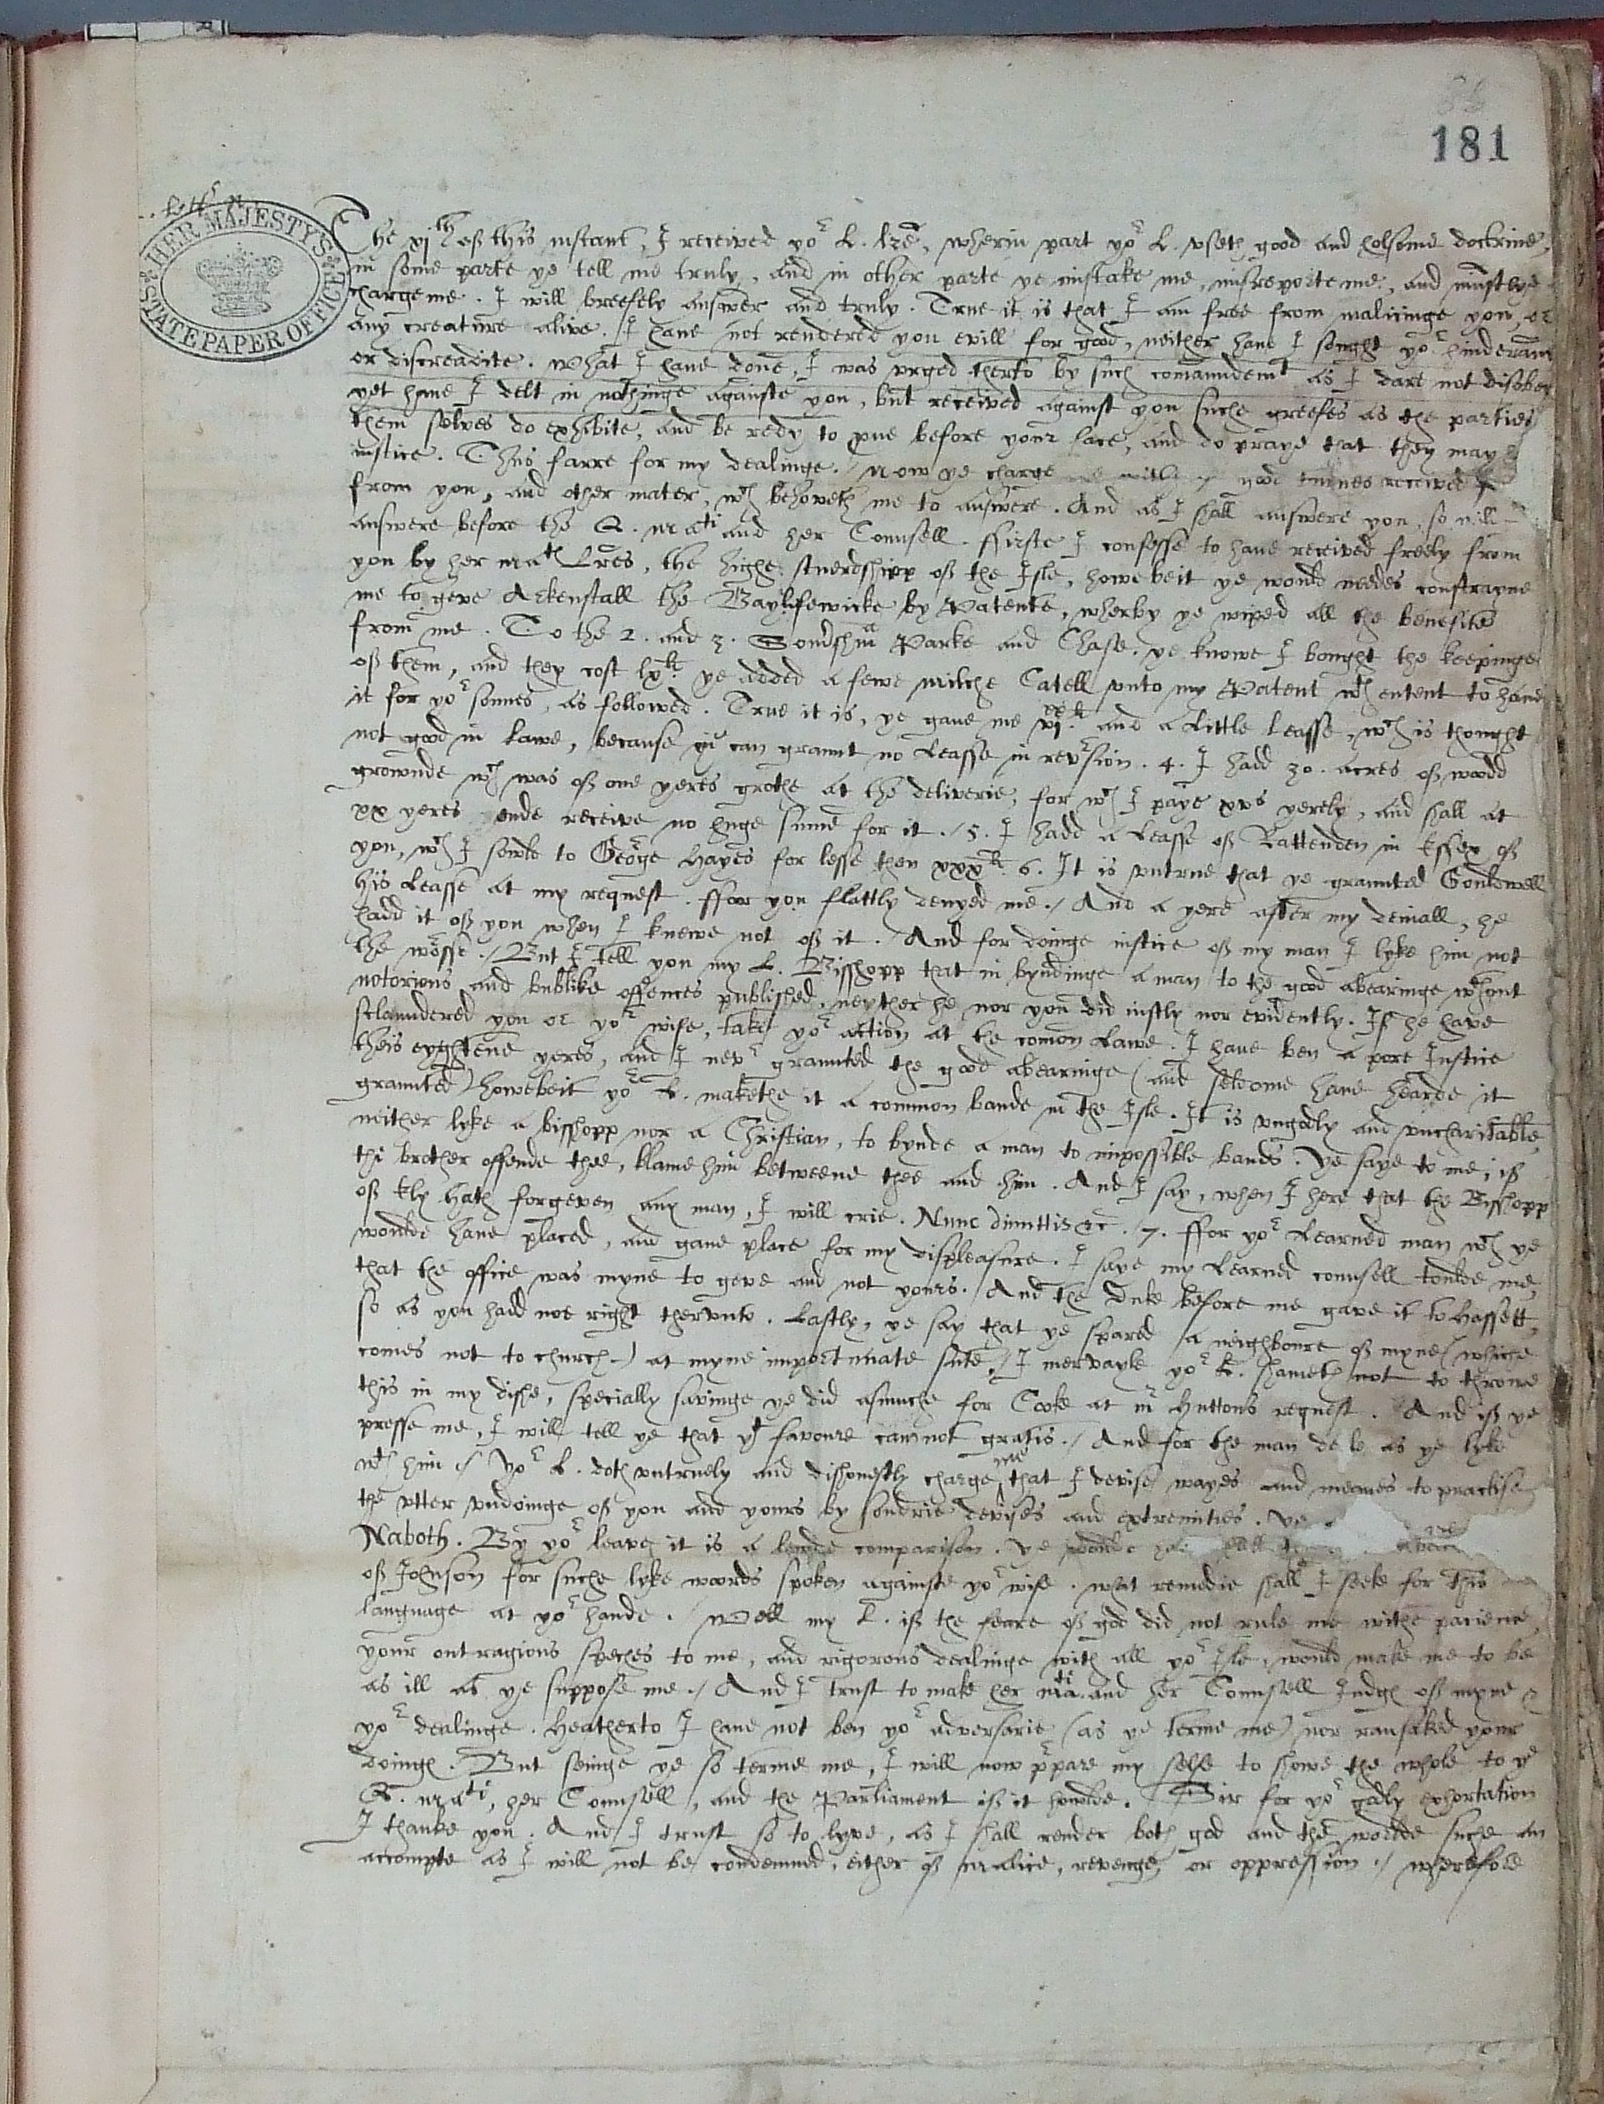 181
HER MAJESTY'S
STATE PAPER OFFICE
The xjth of this instant, I received yor L. lre, wherin part yor L. useth good and holsome doctrine,
in some parte ye tell me truly, and in other parte ye mistake me, misreporte me, and unjustlye
charge me. I will breefely answer and truly. True it is that I am free from malicinge you, or
any creature alive. I have not rendered you evill for good, neither have I sought yor hinderaunce
or discreadite. What I have done, I was urged therto by such comaundemt as I dare not disobey
yet have I delt in nothinge againste you, but received against you suche greefes as the parties
them selves do exhibite, and be redy to pve before your face, and do praye that they may
justice. Thus farre for my dealinge. / Now ye charge me with good turnes received
from you, and other mater, wch behoveth me to answere. And as I shall answere you, so will
answere before the Q. Mati and her Counsell. ffirste I confesse to have received freely from
you by her Mats Lres, the highe stuerdshipp of the Isle, howebeit ye would needes constrayne
me to geve Arkenstall the Baylifewicke by Patente, wherby ye wiped all the benefites
from me. To the 2. and 3. Somersham Parke and Chase. ye knowe I bought the keepinge
of them, and they cost lxli. ye added a fewe milche Catell unto my Patent wch entent to have
it for yor sonnes, as followed. True it is, ye gave me and a little leasse, wch is thought
not good in lawe, because yu can graunt no Leasse in revsion. 4. I hadd 30. acres of wodd
grownde wch was of one yeres grothe at the deliverie, for wch I paye xvs yerely, and shall at
xx yeres ende receive no huge sume for it. / 5. I hadd a Leasse of Rattenden in Essex of
you, wch I sowld to George Hayes for lesse then xxxli. 6. It is untrue that ye graunted Gouldwell
his Leasse at my request. ffor you flattly denyed me. / And a yere after my deniall, he
hadd it of you when I knewe not of it. / And for doinge justice of my man I lyke him not
the worsse. / But I tell you my L. Bisshopp that in byndinge a man to the good abearinge wthout
notorious and publike offences published, neyther he nor you did justly nor evidently. If he have
sclaundered you or yor wife, take yor action at the comon Lawe. I have ben a pore Justice
theis eyghtene yeres, and I nevr graunted the good abearinge (and seldome have hearde it
graunted) howebeit yor L. makethe it a common bande in the Isle. It is ungodly and uncharitable,
neither lyke a bisshopp nor a Christian, to bynde a man to impossible bands. Ye saye to me, if
thi brother offende thee, blame him betweene thee and him. And I say, when I here that the Bisshopp
of Ely hath forgeven any man, I will crie. Nunc dimittis &c. / 7. ffor yor Learned man wch ye
woulde have placed, and gave place for my displeasure. I saye my Learned counsell toulde me,
that the office was myne to geve and not yours. / And the Duke before me gave it to Hassett,
so as you hadd noe right therunto. Lastly, ye say that ye spared a neighboure of myne (whiche
comes not to church) at myne importunate sute. / I mervayle yor L. shameth not to throwe
this in my dishe, specially savinge ye did asmuche for Cooke at mr Huttons request. And if ye
presse me, I will tell ye that yt favoure cam not gratis. / And for the man dele as ye lyke
wth him. / Yor L. doth untruely and dishonestly charge me that I devise wayes and meanes to practise
the utter undoinge of you and yours by sondrie devises and extremities. Ye
Naboth. By yor leave it is a lewde comparison. ye woulde
of Johnson for suche lyke words spoken againste yor wife. what remedie shall I seeke for this
language at yor hande. / Well my L. if the feare of god did not rule me withe pacience,
your outragious speches to me, and rigorous dealinge with all yor Isle, would make me to be
as ill as ye suppose me. / And I trust to make her Mati. and her Counsell Judge of myne &
yor dealinge. Heatherto I have not ben yor adversarie (as ye terme me) nor ransaked your
doings. But seinge ye so terme me, I will now ppare my selfe to showe the whole to ye
Q. Mati, her Counsell, and the Parliament if it houlde. / Sir for yor godly exhortation
I thanke you. And I trust so to lyve, as I shall render both god and the worlde suche an
accompte as I will not be condemned, either of malice, revenge, or oppression. / Wherefore